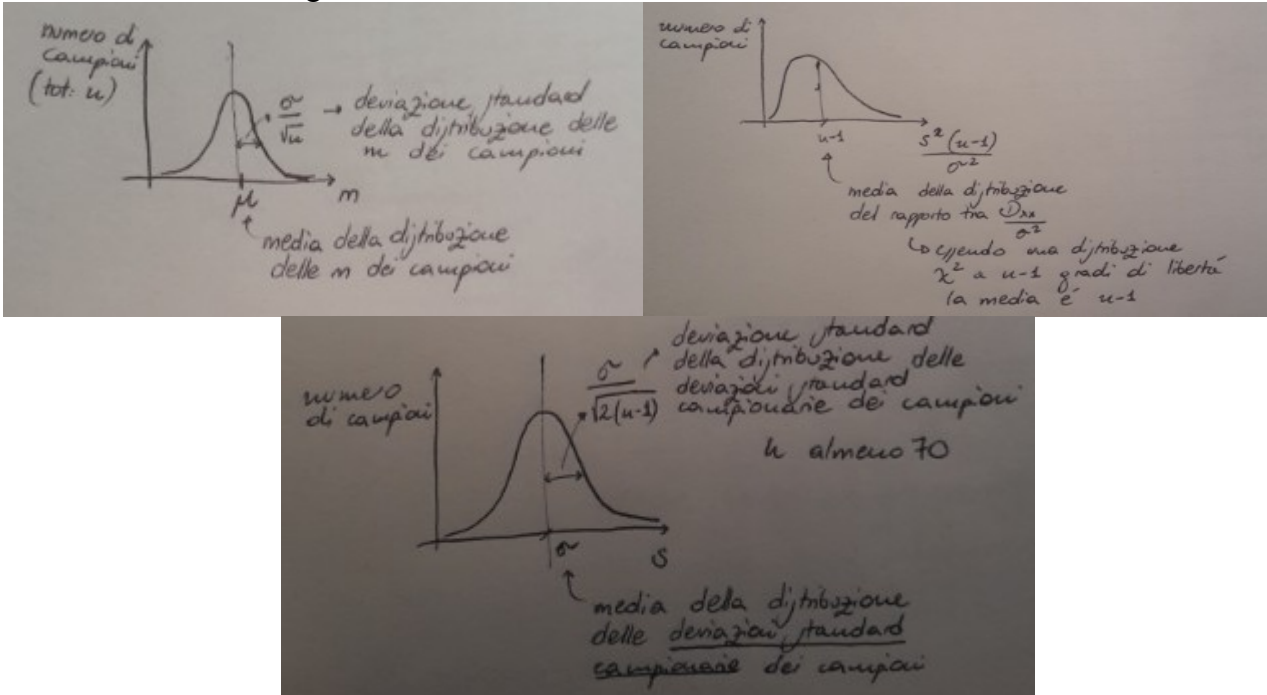 numero di
campioni
(tot: n)
σ/√n → deviazione standard
della distribuzione delle
m dei campioni
μ
m
media della distribuzione
delle m dei campioni
numero di
campioni
n-1
s²(n-1)/σ²
media della distribuzione
del rapporto tra Dxx/σ²
↳ essendo una distribuzione
χ² a n-1 gradi di libertà
la media é n-1
numero
di campioni
deviazione standard
σ/√2(n-1) della distribuzione delle
deviazioni standard
campionarie dei campioni
n almeno 70
σ
s
media della distribuzione
delle deviazioni standard
campionarie dei campioni